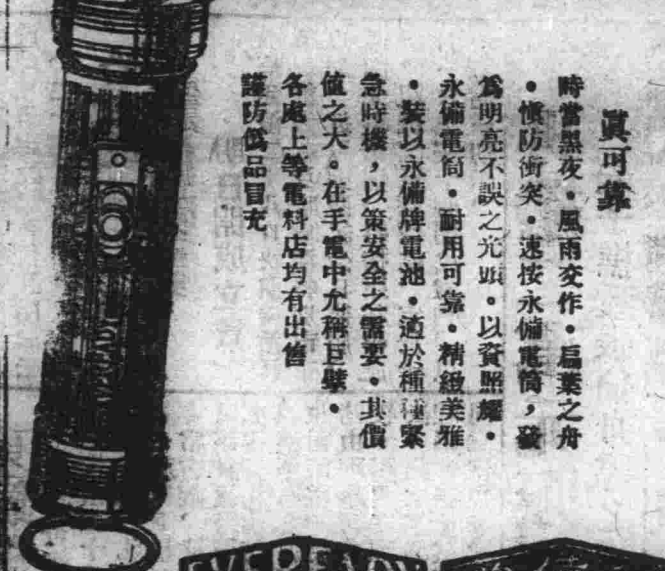 眞可靠
時當黑夜。風雨交作。扁葉之舟
。愼防衝突。速按永備電筒，發
爲明亮不誤之光頭。以資照耀。
永備電筒。耐用可靠。精緻美雅
。裝以永備牌電池。適於種種緊
急時機，以策安全之需要。其價
値之大。在手電中尤稱巨擘。
各處上等電料店均有出售
謹防僞品冒充
EVEREADY